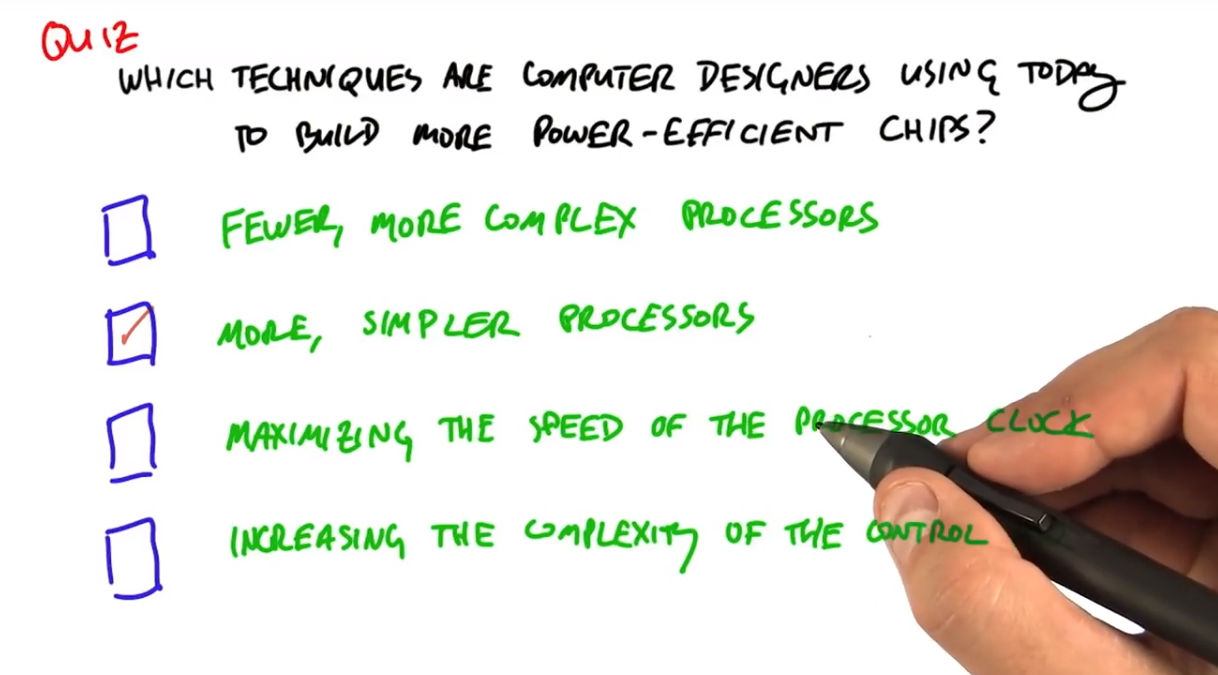 QUIZ
WHICH TECHNIQUES ARE COMPUTER DESIGNERS USING TODAY
TO BUILD MORE POWER-EFFICIENT CHIPS?
FEWER, MORE COMPLEX PROCESSORS
MORE, SIMPLER PROCESSORS
MAXIMIZING THE SPEED OF THE PROCESSOR CLOCK
INCREASING THE COMPLEXITY OF THE CONTROL